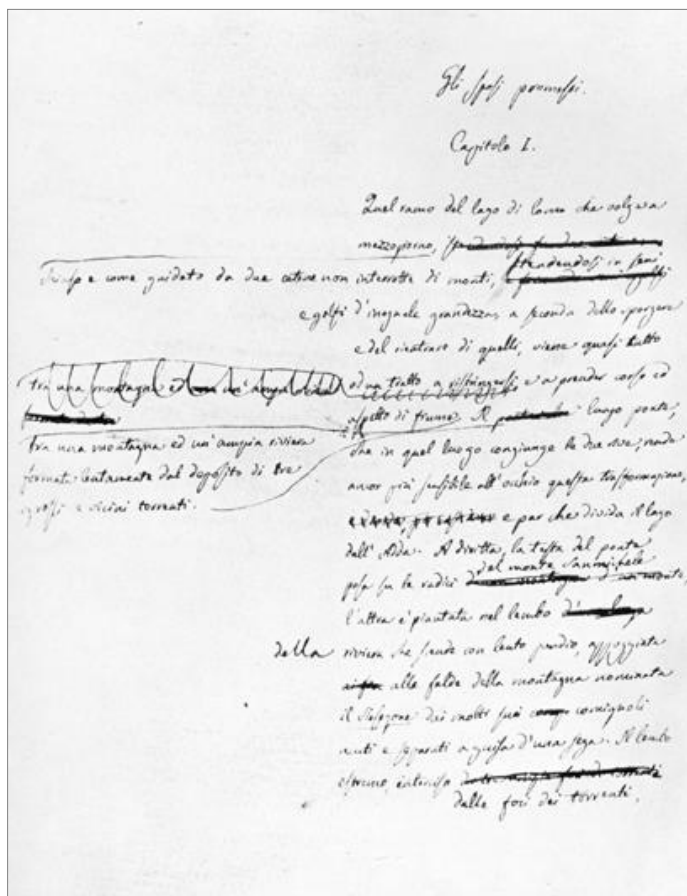 Gli sposi promessi.
Capitolo I.
Quel ramo del lago di Como che volge a
mezzogiorno,
chiuso e come guidato da due catene non interrotte di monti, stendendosi in seni
e golfi d'ineguale grandezza, a seconda dello sporgere
e del rientrare di quelli, viene quasi tutto
ad un tratto a ristringersi e a prender corso ed
aspetto di fiume. Il luogo ponte,
che in quel luogo congiunge le due rive, rende
ancor più sensibile all'occhio questa trasformazione,
e par che divida il lago
dall'Adda. A diritta, la testa del ponte
posa su le radici del monte Sanmichele d'un monte,
l'altra è piantata nel lembo
della riviera che scende con lento pendio, appoggiata
alle falde della montagna nominata
il Resegone dai molti suoi comignoli
acuti e separati a guisa d'una sega. Il lembo
estremo, interciso
dalle foci dei torrenti,
tra una montagna e un'ampia
tra una montagna ed un'ampia riviera
formata lentamente dal deposito di tre
grossi e vicini torrenti.